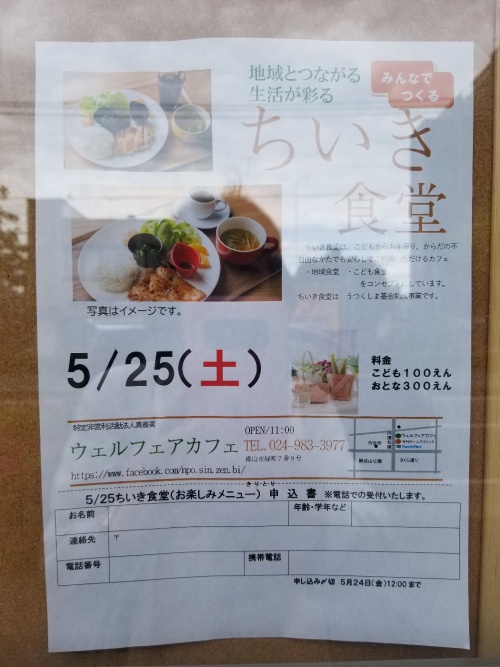 地域とつながる
生活が彩る
みんなで
つくる
ちいき
食堂
ちいき食堂は、こどもからお年寄り、からだの不
自由なかたでも安心してご利用いただけるカフェ
・地域食堂 ・こども食堂
をコンセプトにしています。
ちいき食堂は うつくしま基金助成事業です。
写真はイメージです。
5/25(土)
料金
こども100えん
おとな300えん
特定非営利活動法人真善美
OPEN/11:00
ウェルフェアカフェ TEL.024-983-3977
郡山市緑町7番9号
https://www.facebook.com/npo.sin.zen.bi/
ウェルフェアカフェ
FamilyMart
開成山公園
さくら通り
きりとり
5/25ちいき食堂(お楽しみメニュー) 申 込 書 ※電話での受付いたします。
お名前
年齢・学年など
連絡先
〒
電話番号
携帯電話
申し込み〆切 5月24日(金)12:00まで